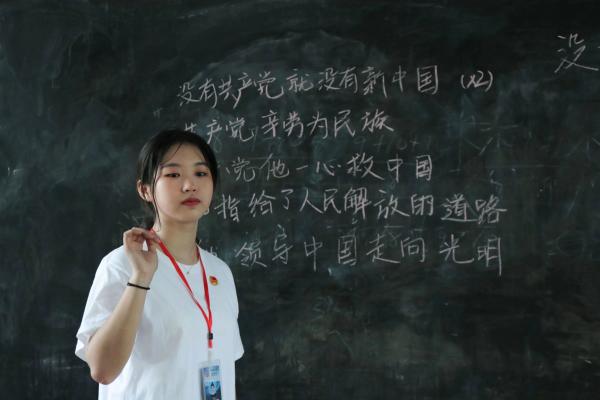 没有共产党就没有新中国 (x2)
共产党 辛劳为民族
党他一心救中国
指给了人民解放的道路
领导中国走向光明
没